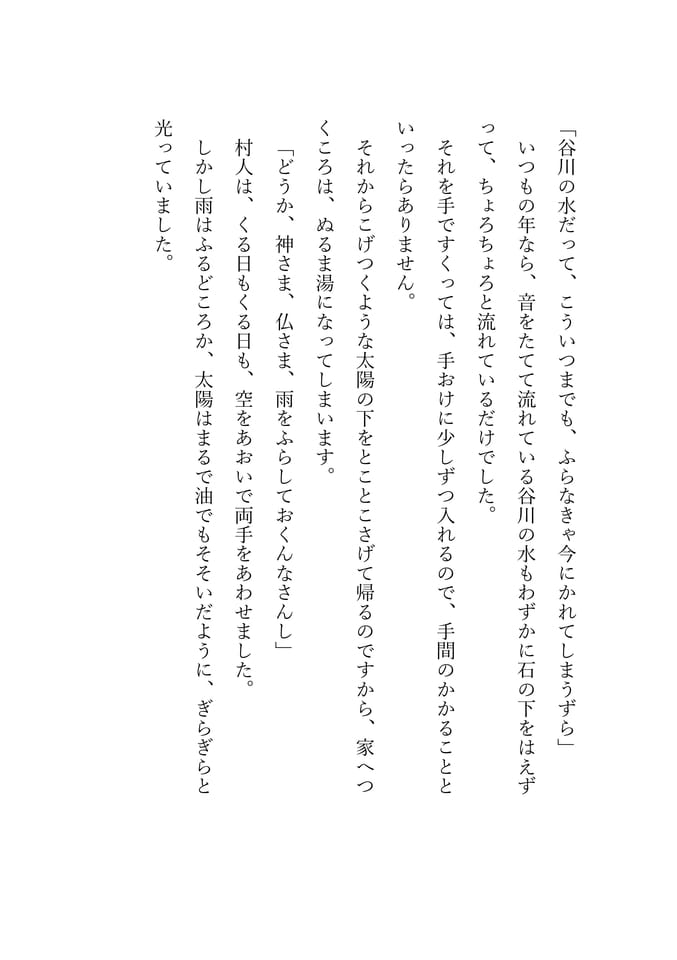 「谷川の水だって、こういつまでも、ふらなきゃ今にかれてしまうずら」
いつもの年なら、音をたてて流れている谷川の水もわずかに石の下をはえず
って、ちょろちょろと流れているだけでした。
それを手ですくっては、手おけに少しずつ入れるので、手間のかかることと
いったらありません。
それからこげつくような太陽の下をとことこさげて帰るのですから、家へつ
くころは、ぬるま湯になってしまいます。
「どうか、神さま、仏さま、雨をふらしておくんなさんし」
村人は、くる日もくる日も、空をあおいで両手をあわせました。
しかし雨はふるどころか、太陽はまるで油でもそそいだように、ぎらぎらと
光っていました。